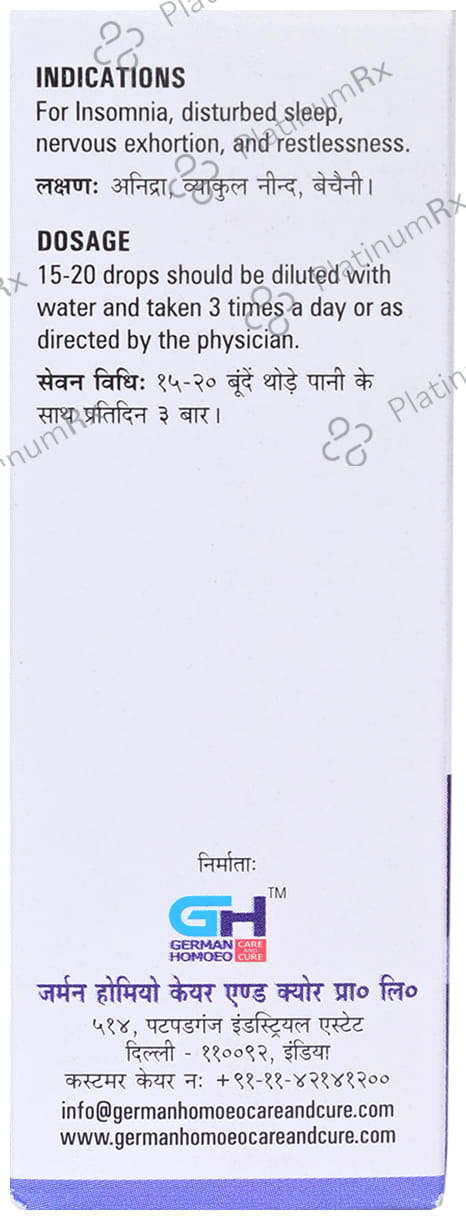 INDICATIONS
For Insomnia, disturbed sleep,
nervous exhortion, and restlessness.
लक्षणः अनिद्रा, व्याकुल नीन्द, बेचैनी।
DOSAGE
15-20 drops should be diluted with
water and taken 3 times a day or as
directed by the physician.
सेवन विधिः १५-२० बूंदें थोड़े पानी के
साथ प्रतिदिन ३ बार।
निर्माताः
GH TM
GERMAN HOMOEO CARE AND CURE
जर्मन होमियो केयर एण्ड क्योर प्रा० लि०
५१४, पटपडगंज इंडस्ट्रियल एस्टेट
दिल्ली - ११००९२, इंडिया
कस्टमर केयर नः +९१-११-४२१४१२००
info@germanhomoeocareandcure.com
www.germanhomoeocareandcure.com
PlatinumRx
PlatinumRx
PlatinumRx